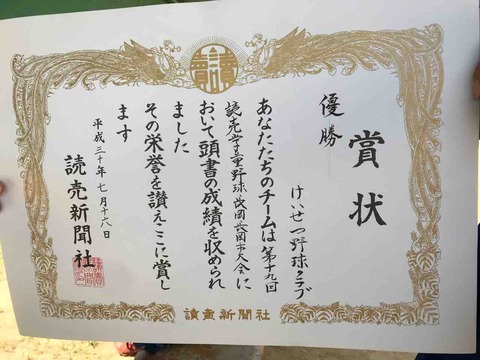 讀賣
賞状
優勝
けいせつ野球クラブ
あなたたちのチームは第十九回
読売学童野球
長岡市大会に
おいて頭書の成績を収められ
ました
その栄誉を讃えここに賞し
ます
平成三十年七月十六日
読売新聞社
讀賣新聞社